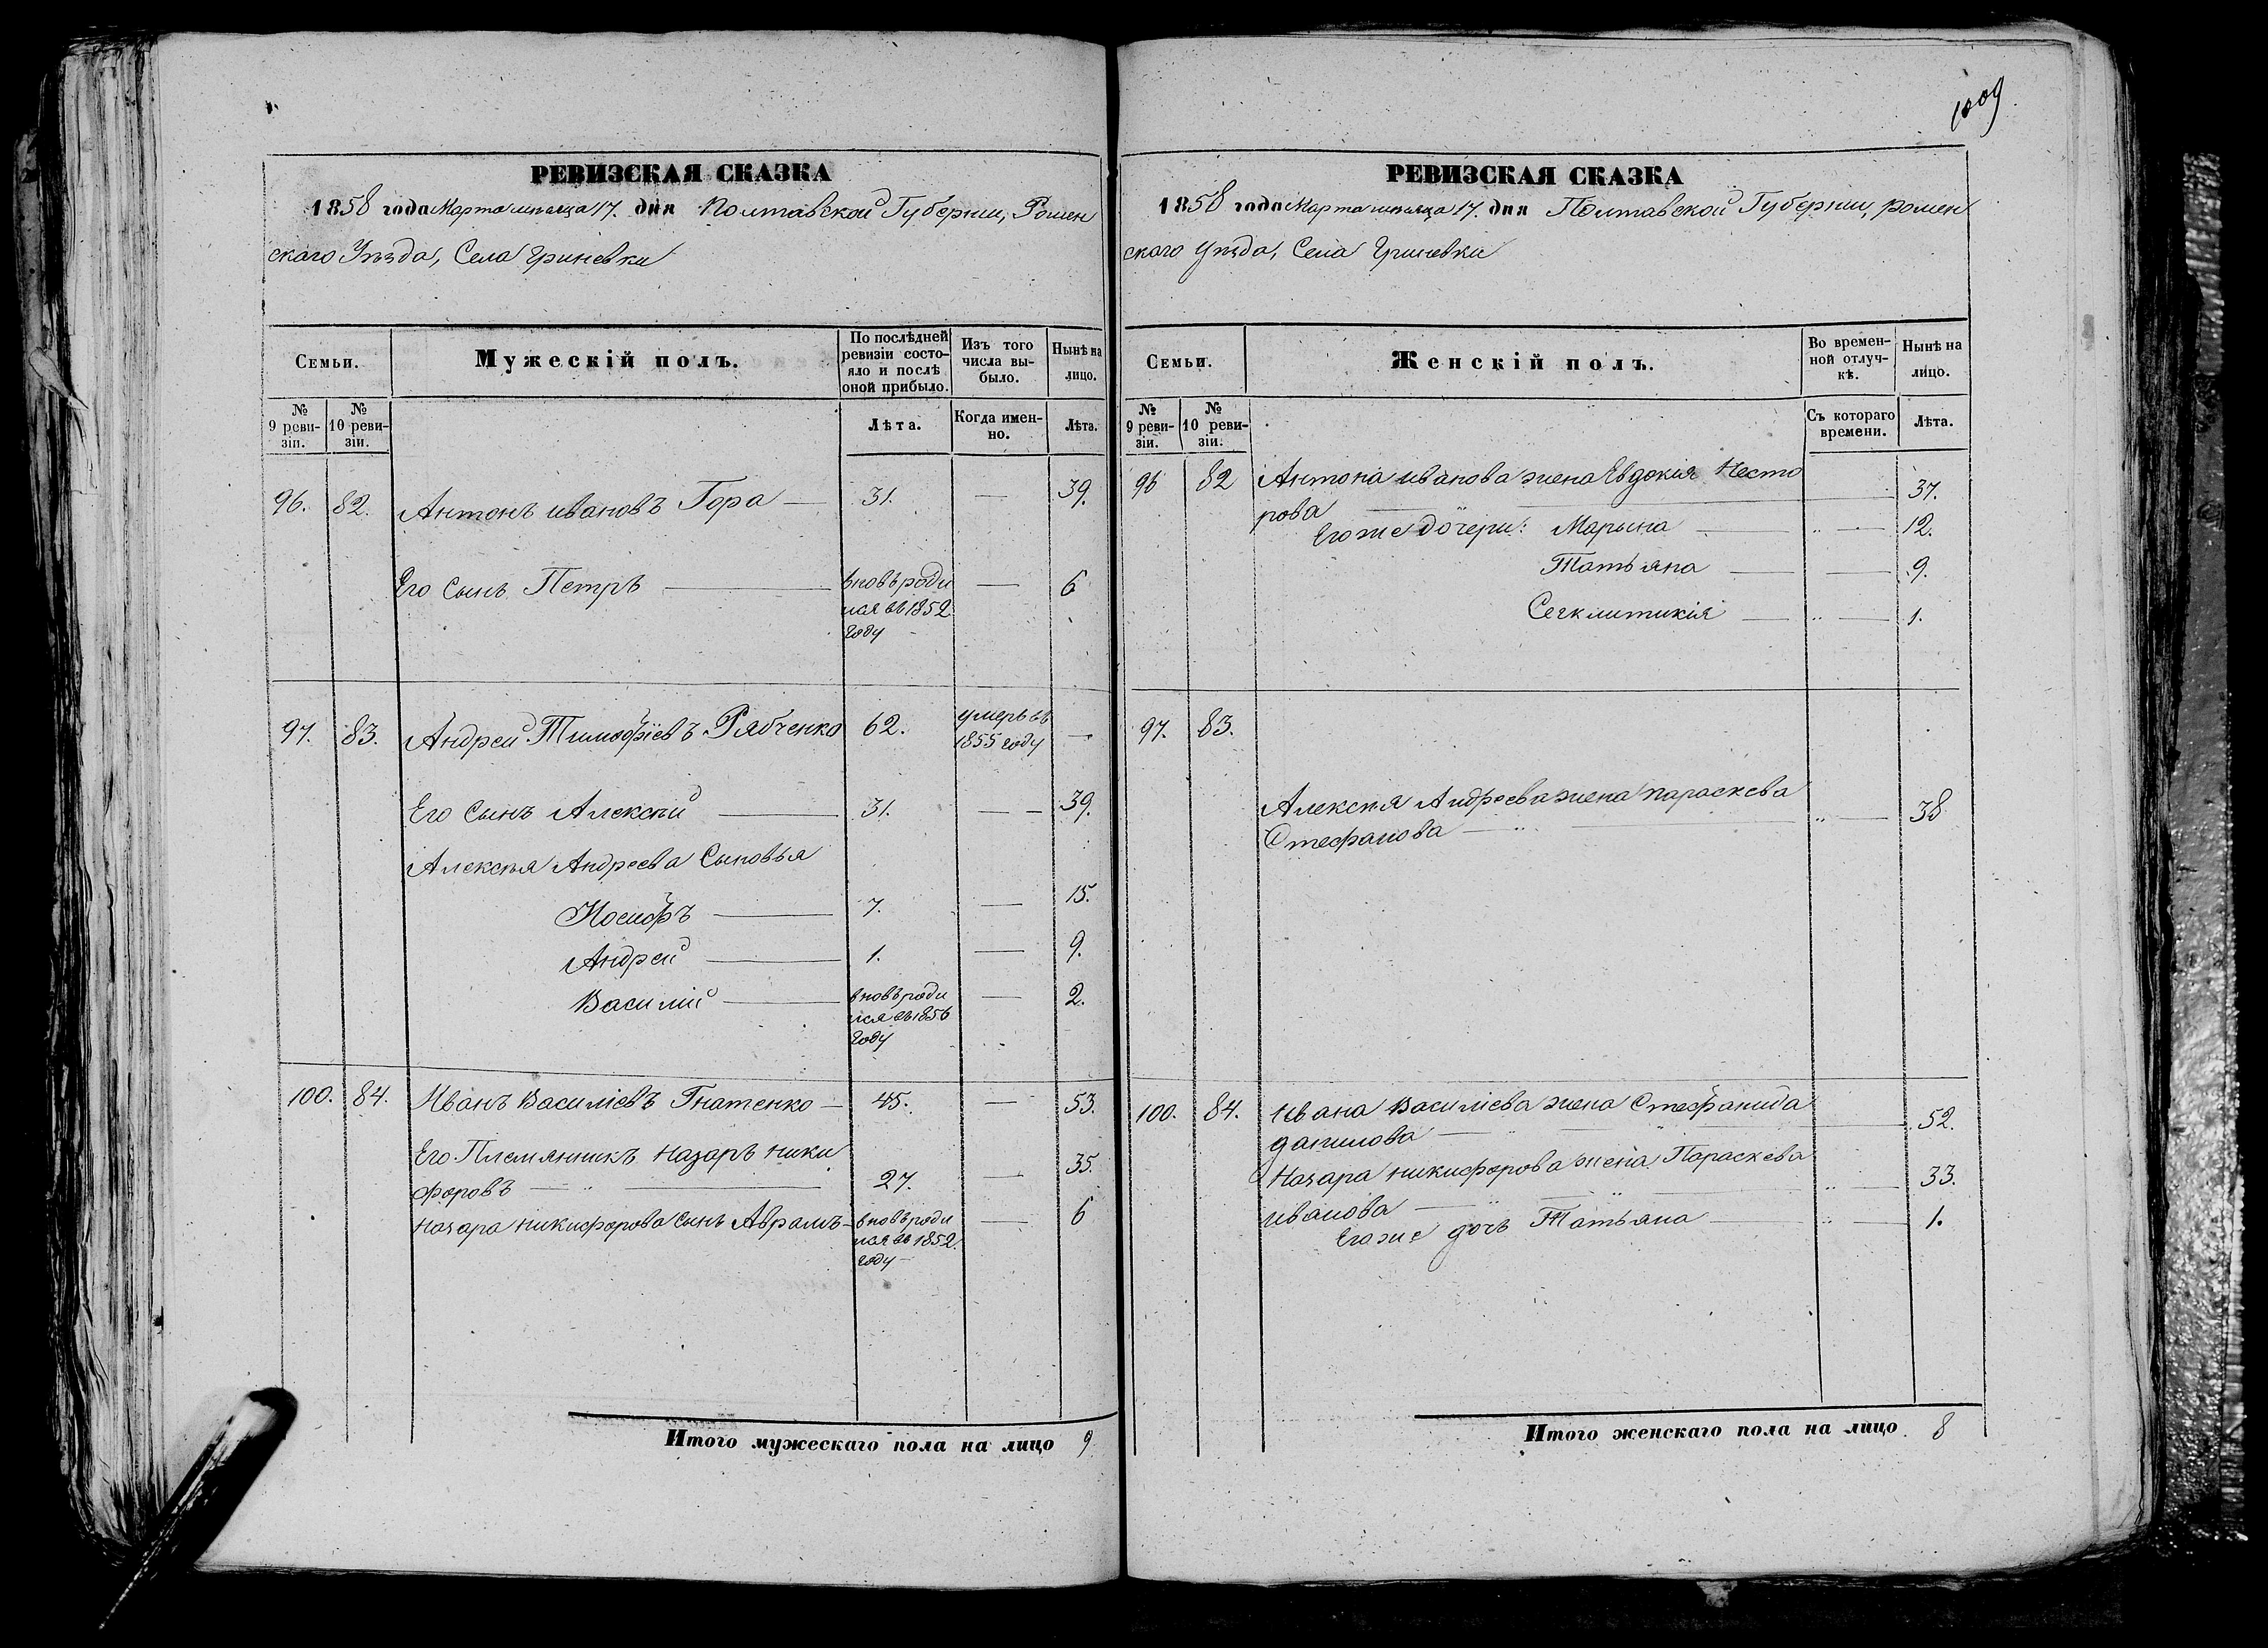 1009
РЕВИЗСКАЯ СКАЗКА
1858 года Марта месяца 17. дня Полтавской Губерніи, Ромен
скаго Уѣзда, Села Гриневки
Семьи.
Мужескій полъ.
По послѣдней
ревизіи состо-
яло и послѣ
оной прибыло.
Изъ того
числа вы-
было.
Нынѣ на
лицо.
№
9 реви-
зіи.
№
10 реви-
зіи.
Лѣта.
Когда имен-
но.
Лѣта.
96. 82. Антонъ Ивановъ Гора — 31. — 39.
Его Сынъ Петръ — вновь роди — 6
лся въ 1852
году
97. 83. Андрей Тимофіевъ Рябченко 62. умеръ въ —
1855 году
Его Сынъ Алексѣй — 31. — 39.
Алексѣя Андреева Сыновья
Иосифъ — 7. — 15.
Андрей — 1. — 9.
Василій — вновь роди — 2.
лся въ 1856
году
100. 84. Иванъ Василіевъ Гнатенко — 45. — 53.
Его Племянникъ Назаръ Ники
форовъ — 27. — 35.
Назара Никифорова Сынъ Аврамъ — вновь роди — 6
лся въ 1852
году
Итого мужескаго пола на лицо 9
РЕВИЗСКАЯ СКАЗКА
1858 года Марта месяца 17. дня Полтавской Губерніи, Ромен
скаго Уѣзда, Села Гриневки
Семьи.
Женскій полъ.
Во времен-
ной отлуч-
кѣ.
Нынѣ на
лицо.
№
9 реви-
зіи.
№
10 реви-
зіи.
Съ котораго
времени.
Лѣта.
96 82 Антона Иванова жена Евдокія Несто
рова — 37.
Его же дочери: Марьина — 12.
Татьяна — 9.
— 1.
97. 83.
Алексѣя Андреева жена Параскева
Стефанова — 38
100. 84. Ивана Василіева жена Стефанида
Данилова — 52.
Назара Никифорова жена Параскева
Иванова — 33.
Его же дочь Татьяна — 1.
Итого женскаго пола на лицо 8